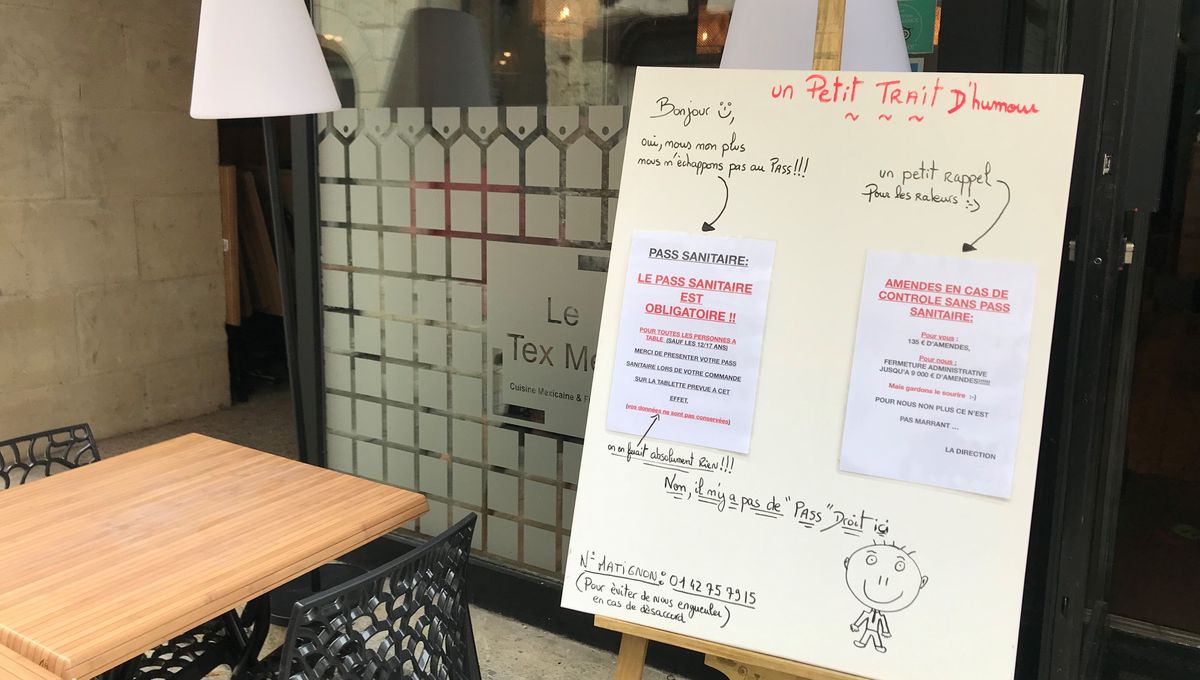 un Petit TRAIT D'humour
Bonjour
oui, nous non plus
nous n'échappons pas au PASS!!!
un petit RAPPEL
Pour les Raleurs :-)
PASS SANITAIRE:
LE PASS SANITAIRE
EST
OBLIGATOIRE !!
POUR TOUTES LES PERSONNES A
TABLE (SAUF LES 12/17 ANS)
MERCI DE PRESENTER VOTRE PASS
SANITAIRE LORS DE VOTRE COMMANDE
SUR LA TABLETTE PREVUE A CET
EFFET,
(vos données ne sont pas conservées)
on en fuait absolument Rien!!!
AMENDES EN CAS DE
CONTROLE SANS PASS
SANITAIRE:
Pour vous :
135 € D'AMENDES,
Pour nous :
FERMETURE ADMINISTRATIVE
JUSQU'A 9 000 € D'AMENDES!!!!!!
Mais gardons le sourire :-)
POUR NOUS NON PLUS CE N'EST
PAS MARRANT ...
LA DIRECTION
Non, il n'y a pas de "PASS" Droit ici
N° MATIGNON: 01 42 75 79 15
(Pour éviter de nous engueuler)
en cas de désaccord
Le
Tex Me
Cuisine Mexicaine & F